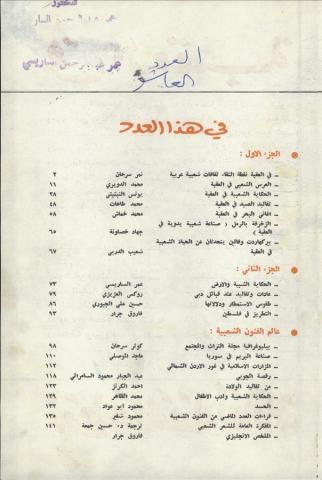 الدكتور
عمر عبد الرحمن الساريسي
العدد
العاشر
في هذا العدد
الجزء الاول :
في العقبة نقطة التقاء ثقافات شعبية عربية نمر سرحان ٢
العرس الشعبي في العقبة محمد الدويري ١١
الحكاية الشعبية في العقبة ٣٨
تقاليد الصيد في العقبة محمد طاهات ٤٨
اغاني البحر في العقبة محمد خماش ٥٨
الزخرفة بالرمل ( صناعة شعبية يدوية في
العقبة ) جهاد خصاونة ٦٥
بركهاردت وفالين يتحدثان عن الحياة الشعبية
في العقبة شعيب الدربي ٦٧
الجزء الثاني :
الحكاية الشعبية والارض عمر الساريسي ٧٣
عادات وتقاليد عند قبائل دبي روكس العزيزي ٧٩
طقوس الاستمطار ودلالاتها حسين علي الجبوري ٨٦
التطريز في فلسطين فاروق جرار ٩٣
عالم الفنون الشعبية :
ببليوغرافية مجلة التراث والمجتمع كوثر سرحان ٩٨
صناعة البريم في سوريا ماجد الموصلي ١١٠
المزارات الاسلامية في غور الاردن الشمالي ١١٢
رقصة الجوبي عبد الجبار محمود السامرائي ١١٨
من تقاليد الولادة احمد الكرنز ١٢٣
الحكاية الشعبية وأدب الاطفال محمد الظاهر ١٢٩
الحسد محمود ابو عواد ١٣٢
قراءات العدد الماضي من الفنون الشعبية محمود شقير ١٣٥
المفكرة العامة للشعر الشعبي ترجمة د٠ حسين جمعة ١٤١
الملخص الانجليزي فاروق جرار